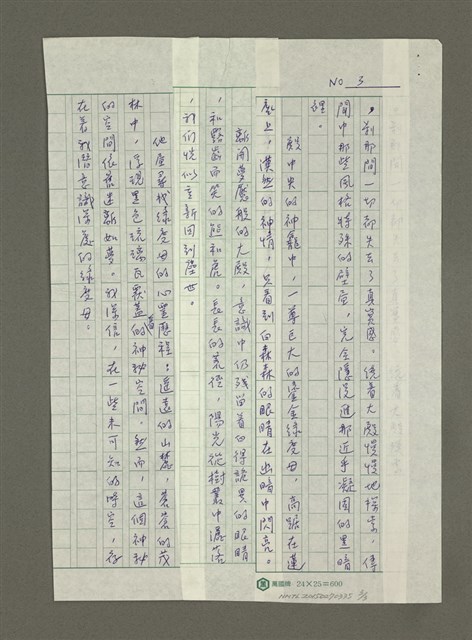 NO 3
，剎那間一切都失去了真實感。繞著大殿慢慢地探索，傳
聞中那些風格特殊的壁畫，完全隱沒進那近乎凝固的黑暗
裡。
殿中央的神龕中，一尊巨大的鎏金綠度母，高踞在蓮
座上，漠然的神情，只看到白森森的眼睛在幽暗中閃亮。
離開夢魘般的大殿，意識中仍殘留着白得詭異的眼睛
，和齜齒而笑的熊和虎。長長的荒徑，陽光從樹叢中灑落
，我們恍似重新回到塵世。
他屋尋找綠度母的心靈歷程：遙遠的山麓，蒼蒼的茂
林中，浮現黑色琉璃瓦覆蓋着的神秘空間。然而，這個神秘
的空間依舊迷離如夢。我深信，在一些未可知的時空，存
在着我潛意識深處的綠度母。
萬國牌 24×25=600